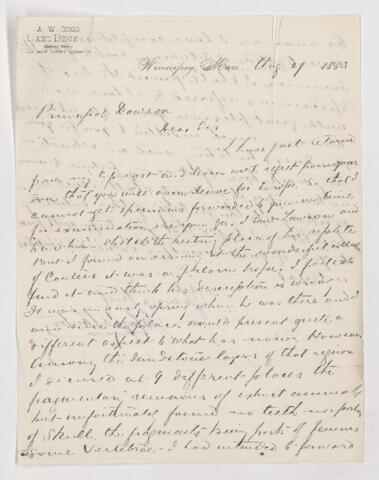 A. W. ROSS.
LAND BROKER
Winnipeg, Man. Aug 29 1883
Principal Dawson
Dear Sir
I have just returned
from my trip west and learn with regret from your
son that you will soon leave for Europe so that I
cannot get specimens forwarded to you in time
for examination by you. I saw Lawson and
him the resting place of his reptile
but I found on arriving at the wonderful collection
of Coulees it was a forlorn hope. I failed to
find it and think his description is wrong.
It was in early spring when he was there and
and since the place would present quite a
different aspect to what has now. However
among the sandstone layers of that region
I secured at 9 different places the
fragmentary remains of extinct animals
but unfortunately found no teeth nor parts
of skull, the fragments being parts of femurs
some vertebrae - I had intended to forward